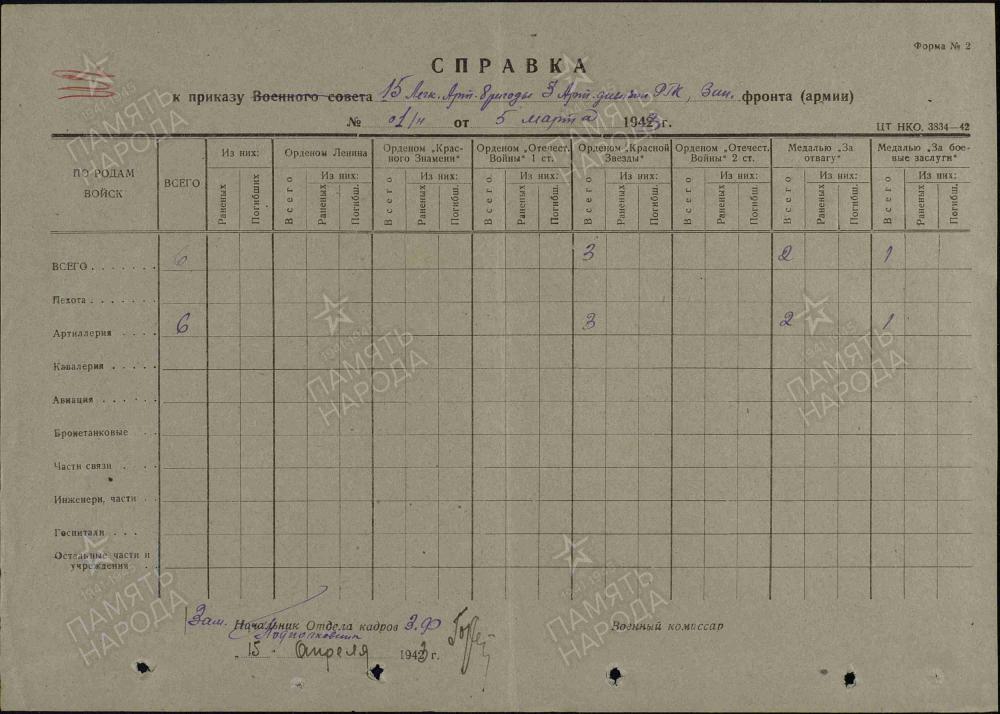 Форма № 2
СПРАВКА
к приказу Военного совета 15 Легк. Арт. бригады 3 Арт. дивизии РГК, Зап. фронта (армии)
№ 01/н от 5 марта 1943 г.
ЦТ НКО. 3834—42
ПО РОДАМ ВОЙСК
ВСЕГО
Из них:
Раненых
Погибших
Орденом Ленина
Всего
Из них:
Раненых
Погибш.
Орденом „Красного Знамени"
Всего
Из них:
Раненых
Погибш.
Орденом „Отечест. Войны" 1 ст.
Всего
Из них:
Раненых
Погибш.
Орденом „Красной Звезды"
Всего
Из них:
Раненых
Погибш.
Орденом „Отечест. Войны" 2 ст.
Всего
Из них:
Раненых
Погибш.
Медалью „За отвагу"
Всего
Из них:
Раненых
Погибш.
Медалью „За боевые заслуги"
Всего
Из них:
Раненых
Погибш.
ВСЕГО . . . . . . . 6 3 2 1
Пехота . . . . . . .
Артиллерия . . . . 6 3 2 1
Кавалерия . . . . .
Авиация . . . . . .
Бронетанковые . .
Части связи . . .
Инженерн, части . .
Госпитали . . . .
Остальные части и
учреждения . .
Зам. Начальник Отдела кадров З.Ф
Военный комиссар
Подполковник
„15" апреля 1943 г.
1941-1945
ПАМЯТЬ
НАРОДА